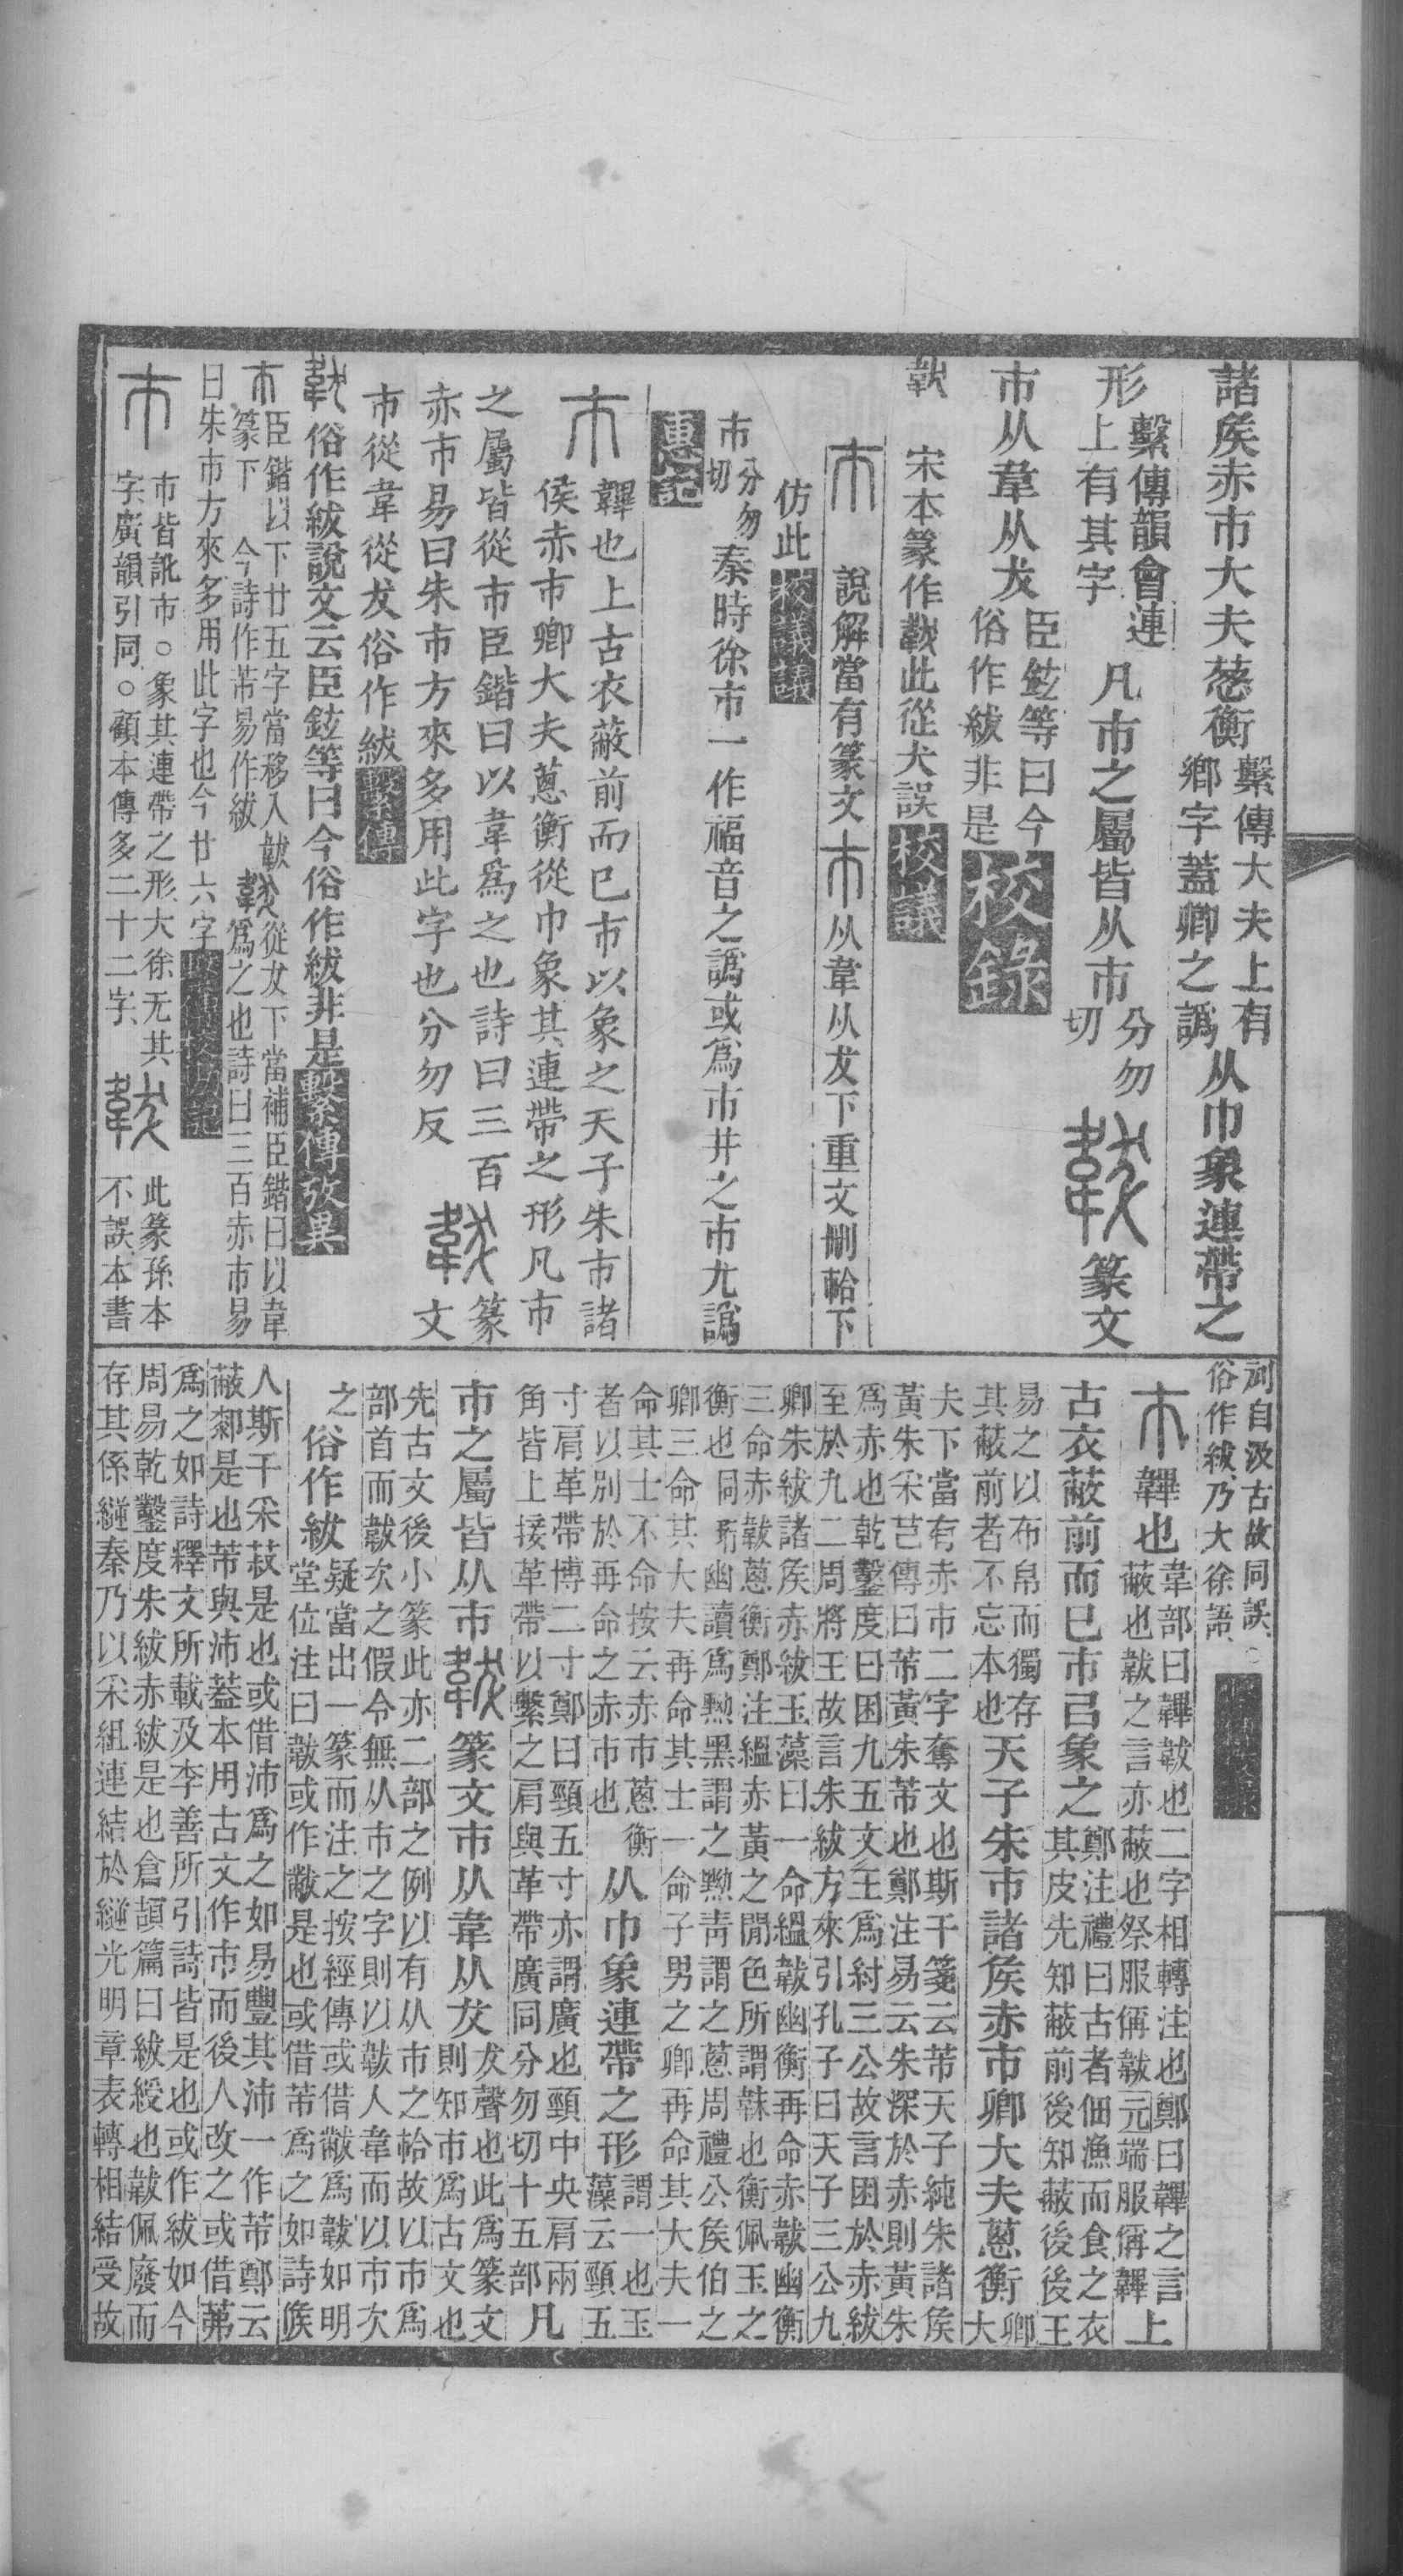 諸矦赤巿大夫蔥衡繫傳大夫上有鄉字蓋卿之譌从巾象連帶之
形繫傳韻會連上有其字凡巿之屬皆从巿分勿切韍篆文
巿从韋从犮臣鉉等曰今俗作紱非是校錄
韍宋本篆作韍此從犬誤校議
巿說解當有篆文巿从韋从犮下重文刪帢下
仿此校議議
巿分勿切秦時徐巿一作福音之譌或爲市井之市尤譌
惠記
巿韠也上古衣蔽前而已巿以象之天子朱巿諸
侯赤巿卿大夫蔥衡從巾象其連帶之形凡巿
之屬皆從巿臣鍇曰以韋爲之也詩曰三百
赤巿易曰朱巿方來多用此字也分勿反韍篆文
巿從韋從犮俗作紱繫傳
韍俗作紱說文云臣鉉等曰今俗作紱非是繫傳攷異
巿臣鍇以下廿五字當移入韍篆下今詩作芾易作紱韍從犮下當補臣鍇曰以韋爲之也詩曰三百赤巿易
曰朱巿方來多用此字也今廿六字繫傳校勘記
巿巿皆訛市○象其連帶之形大徐无其字廣韻引同○顧本傳多二十二字韍此篆孫本不誤本書
列自汲古故同誤○俗作紱乃大徐語
巿韠也韋部曰韠韍也二字相轉注也鄭曰韠之言蔽也韍之言亦蔽也祭服偁韍元端服偁韠上
古衣蔽前而已巿㠯象之鄭注禮曰古者佃漁而食之衣其皮先知蔽前後知蔽後後王
易之以布帛而獨存其蔽前者不忘本也天子朱巿諸矦赤巿卿大夫蔥衡卿大
夫下當有赤巿二字奪文也斯干箋云芾天子純朱諸矦
黃朱采芑傳曰芾黃朱芾也鄭注易云朱深於赤則黃朱
爲赤也乾鑿度曰困九五文王爲紂三公故言困於赤紱
至於九二周將王故言朱紱方來引孔子曰天子三公九
卿朱紱諸矦赤紱玉藻曰一命縕韍幽衡再命赤韍幽衡
三命赤韍蔥衡鄭注縕赤黃之閒色所謂韎也衡佩玉之
衡也同珩幽讀爲黝黑謂之黝青謂之蔥周禮公矦伯之
卿三命其大夫再命其士一命子男之卿再命其大夫一
命其士不命按云赤巿蔥衡
者以別於再命之赤巿也从巾象連帶之形謂一也玉藻云頸五
寸肩革帶博二寸鄭曰頸五寸亦謂廣也頸中央肩兩
角皆上接革帶以繫之肩與革帶廣同分勿切十五部凡
巿之屬皆从巿韍篆文巿从韋从犮犮聲也此爲篆文則知巿爲古文也
先古文後小篆此亦二部之例以有从巿之帢故以巿爲
部首而韍次之假令無从巿之字則以韍入韋而以巿次
之俗作紱疑當出一篆而注之按經傳或借黻爲韍如明
堂位注曰韍或作黻是也或借芾爲之如詩矦
人斯干采菽是也或借沛爲之如易豐其沛一作芾鄭云
蔽厀是也芾與沛葢本用古文作巿而後人改之或借茀
爲之如詩釋文所載及李善所引詩皆是也或作紱如今
周易乾鑿度朱紱赤紱是也倉頡篇曰紱綬也韍佩廢而
存其係縌秦乃以采組連結於縌光明章表轉相結受故